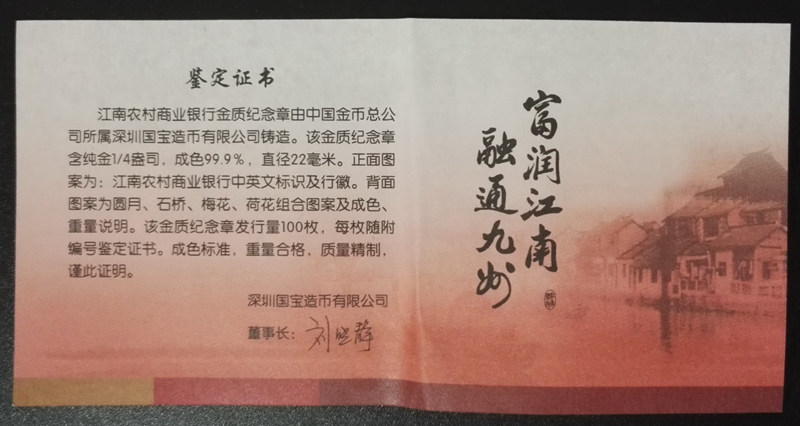 鉴定证书
江南农村商业银行金质纪念章由中国金币总公
司所属深圳国宝造币有限公司铸造。该金质纪念章
含纯金1/4盎司，成色99.9%，直径22毫米。正面图
案为：江南农村商业银行中英文标识及行徽。背面
图案为圆月、石桥、梅花、荷花组合图案及成色、
重量说明。该金质纪念章发行量100枚，每枚随附
编号鉴定证书。成色标准，重量合格，质量精制，
谨此证明。
深圳国宝造币有限公司
董事长：
富润江南
融通九州